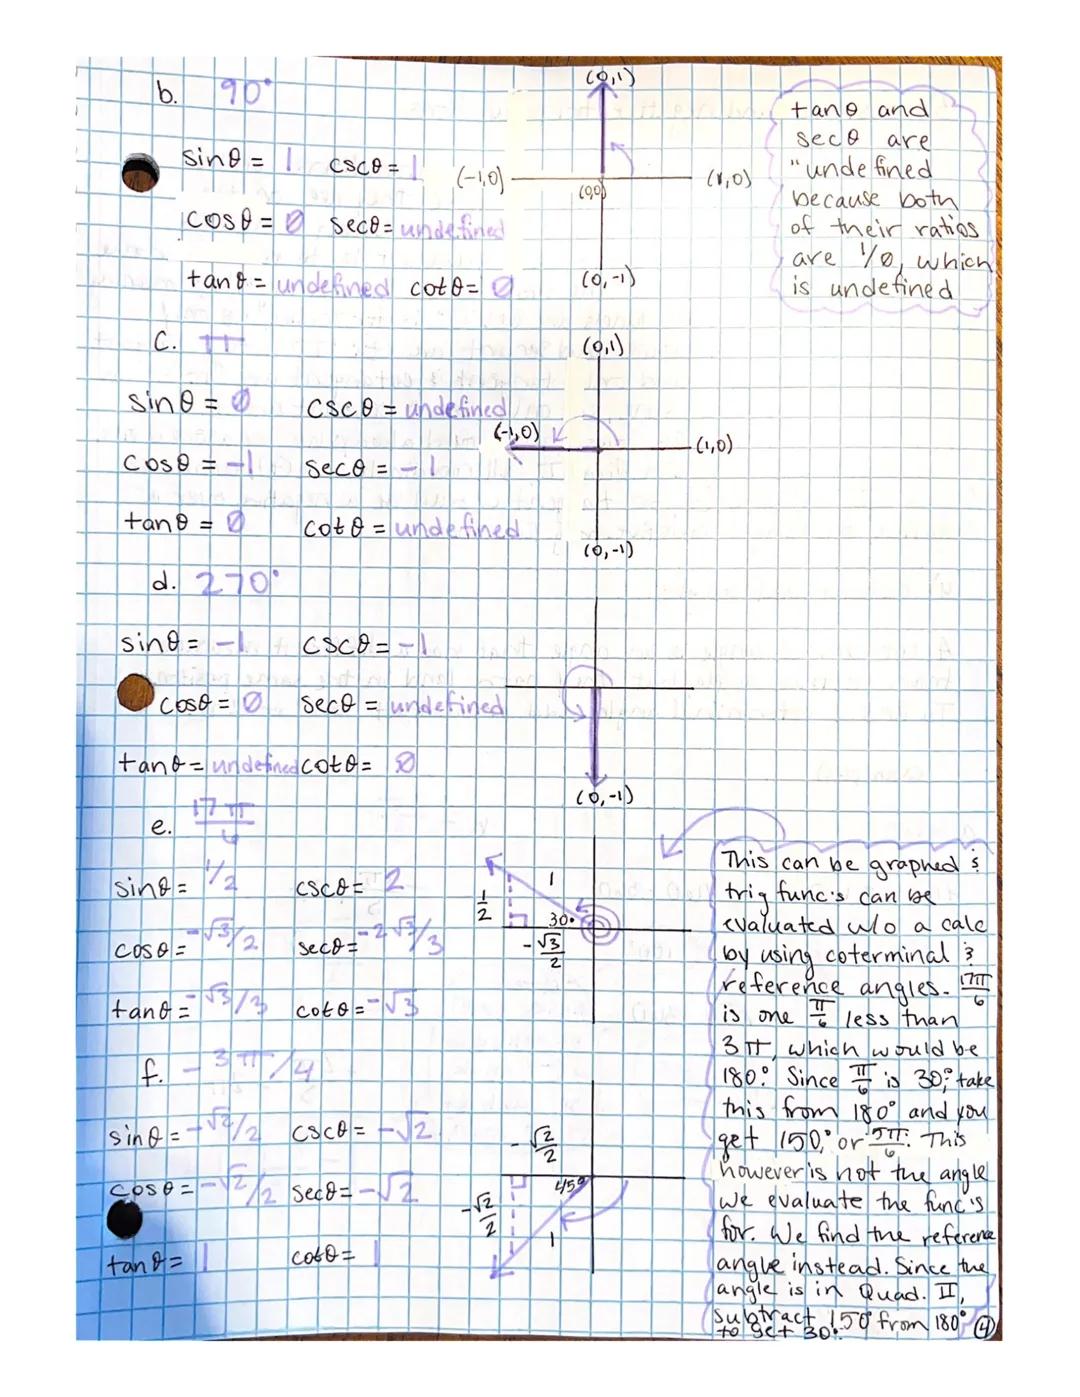 b. 90°
(0,1)
sinθ = 1 cscθ = 1
(-1,0) (0,0) (1,0)
cosθ = 0 secθ = undefined
tanθ = undefined cotθ = 0
(0,-1)
tanθ and
secθ are
"undefined
because both
of their ratios
are 1/0, which
is undefined
c. π
(0,1)
sinθ = 0 cscθ = undefined
(-1,0) (1,0)
cosθ = -1 secθ = -1
tanθ = 0 cotθ = undefined
(0,-1)
d. 270°
sinθ = -1 cscθ = -1
cosθ = 0 secθ = undefined
tanθ = undefined cotθ = 0
(0,-1)
e. 17π/6
sinθ = 1/2 cscθ = 2
1/2 1 30° -√3/2
cosθ = -√3/2 secθ = -2√3/3
tanθ = -√3/3 cotθ = -√3
This can be graphed &
trig func's can be
evaluated w/o a calc
by using coterminal &
reference angles. 17π/6
is one π/6 less than
3π, which would be
180°. Since π/6 is 30°, take
this from 180° and you
get 150°, or 5π/6. This
however is not the angle
we evaluate the func's
for. We find the reference
angle instead. Since the
angle is in Quad. II,
subtract 150° from 180°
to get 30°.
f. -3π/4
sinθ = -√2/2 cscθ = -√2
-√2/2 45°
cosθ = -√2/2 secθ = -√2
-√2/2 1
tanθ = 1 cotθ = 1
4